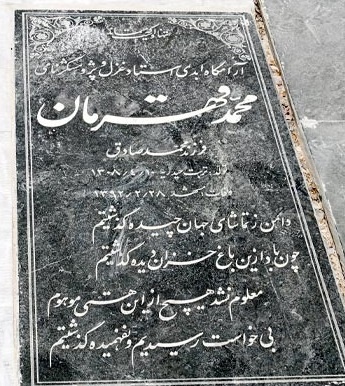 آرامگاه ابدی استاد غزل و پژوهشگر نامی
محمد قهرمان
فرزند محمد صادق
تولد: تربت حیدریه ۱۳۰۸/۴/۱۰
وفات: مشهد ۱۳۹۲/۲/۲۸
دامن ز تماشای جهان چیده گذشتیم
چون باد ازین باغ خزان دیده گذشتیم
معلوم نشد هیچ از این هستی موهوم
بی خواست رسیدیم و نفهمیده گذشتیم